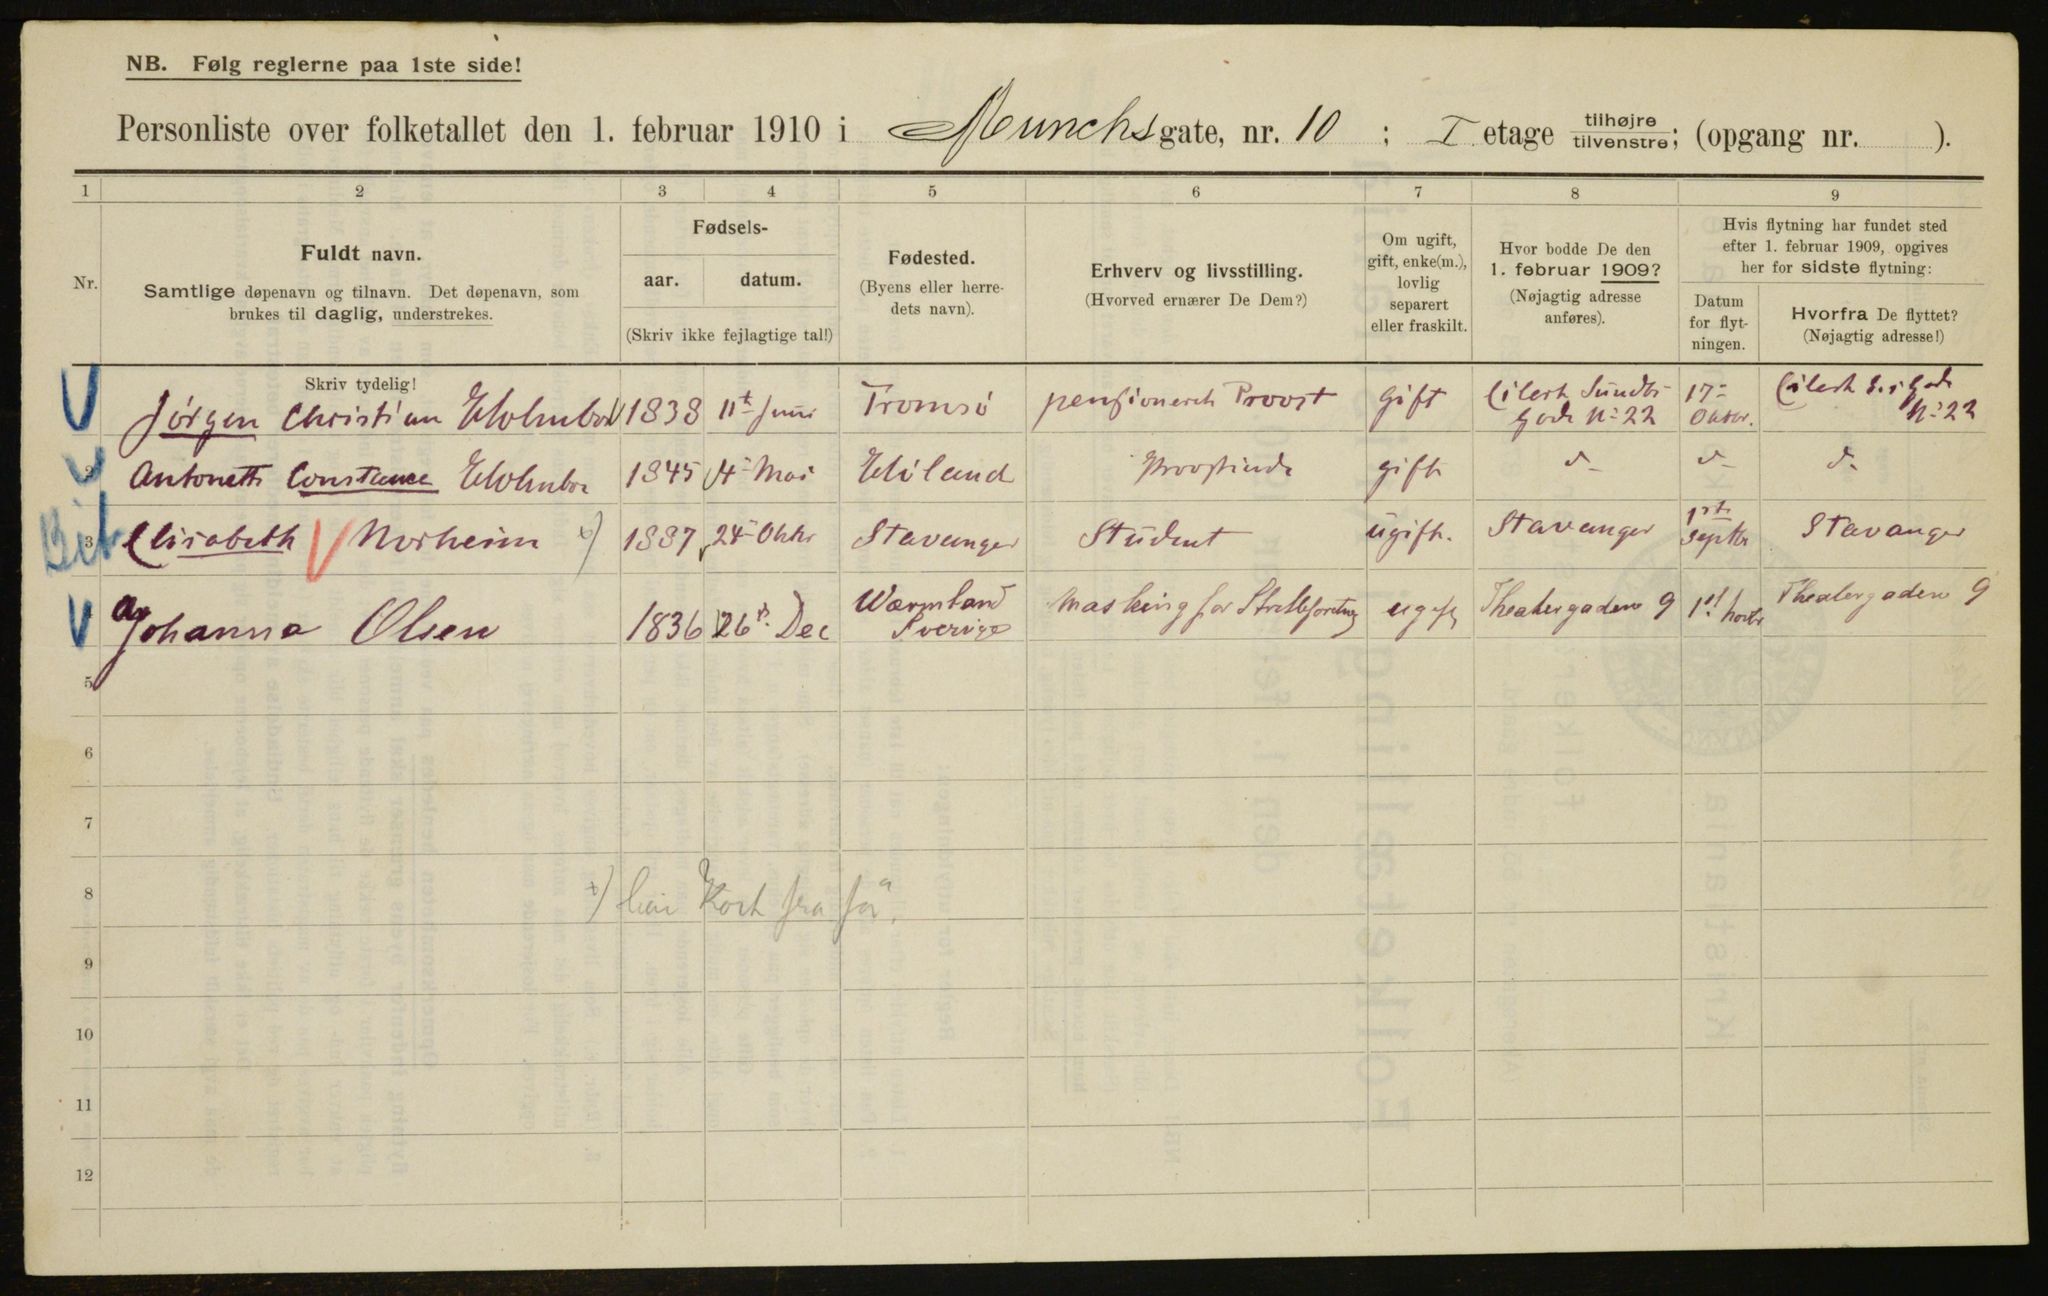 NB. Følg reglerne paa 1ste side!
Personliste over folketallet den 1. februar 1910 i Munchsgate, nr. 10 ; I etage tilhøjre/tilvenstre; (opgang nr. ).
1 2 3 4 5 6 7 8 9
Nr.
Fuldt navn.
Samtlige døpenavn og tilnavn. Det døpenavn, som
brukes til daglig, understrekes.
Fødsels-
aar. datum.
(Skriv ikke fejlagtige tal!)
Fødested.
(Byens eller herre-
dets navn).
Erhverv og livsstilling.
(Hvorved ernærer De Dem?)
Om ugift,
gift, enke(m.),
lovlig
separert
eller fraskilt.
Hvor bodde De den
1. februar 1909?
(Nøjagtig adresse
anføres).
Hvis flytning har fundet sted
efter 1. februar 1909, opgives
her for sidste flytning:
Datum
for flyt-
ningen.
Hvorfra De flyttet?
(Nøjagtig adresse!)
Skriv tydelig!
Jørgen Christian Holmboe 1838 11t Juni Tromsø pensioneret Provst gift Eilert Sundts Gade No 22 17 Oktbr. Eilert S. Gade No 22
2 Antonette Constance Holmboe 1845 14 Mai Høiland Provstinde gift d d d
3 Elisabeth Norheim x) 1887 24 Oktbr Stavanger Student ugift. Stavanger 1ste Septbr Stavanger
Johanna Olsen 1836 26 Dec Wærmland Sverige ugift Theatergaden 9 1st Theatergaden 9
5
6
7
8 x) har Kort fra før.
9
10
11
12